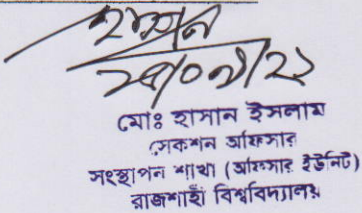 হাসান
মোঃ হাসান ইসলাম
সেকশন অফিসার
সংস্থাপন শাখা (অফিসার ইউনিট)
রাজশাহী বিশ্ববিদ্যালয়